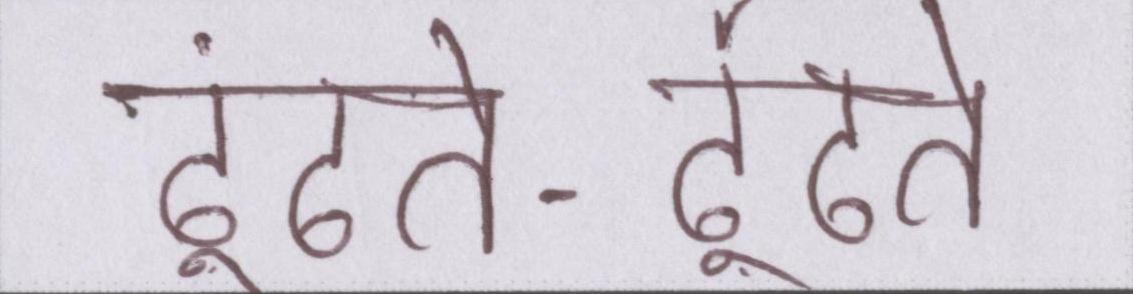 ढूंढते- ढूंढते